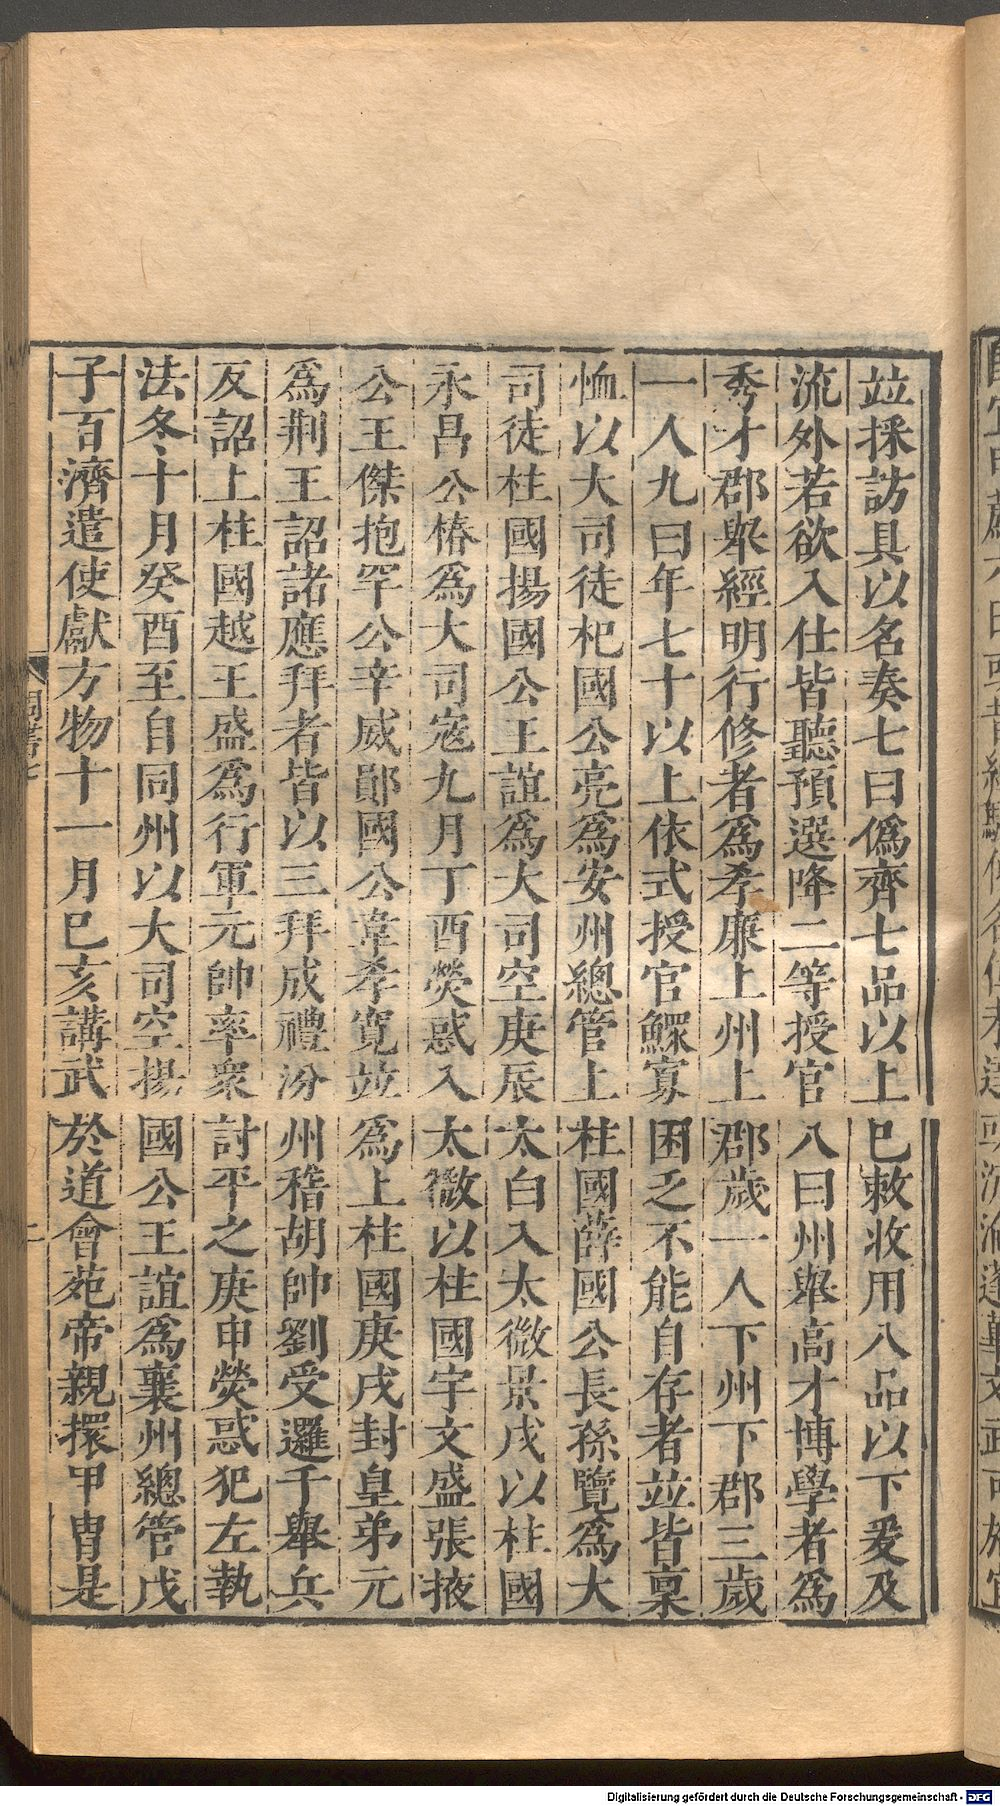 竝採訪具以名奏七曰僞齊七品以上已敕收用八品以下爰及
流外若欲入仕皆聽預選降二等授官八曰州舉高才博學者爲
秀才郡舉經明行修者爲孝廉上州上郡歲一人下州下郡三歲
一人九曰年七十以上依式授官鰥寡困乏不能自存者竝皆稟
恤以大司徒杞國公亮爲安州總管上柱國薛國公長孫覽爲大
司徒柱國揚國公王誼爲大司空庚辰太白入太微景戌以柱國
永昌公椿爲大司寇九月丁酉熒惑入太微以柱國宇文盛張掖
公王傑抱罕公辛威鄖國公韋孝寬竝爲上柱國庚戌封皇弟元
爲荆王詔諸應拜者皆以三拜成禮汾州稽胡帥劉受邏千舉兵
反詔上柱國越王盛爲行軍元帥率衆討平之庚申熒惑犯左執
法冬十月癸酉至自同州以大司空揚國公王誼爲襄州總管戊
子百濟遣使獻方物十一月巳亥講武於道會苑帝親擐甲胄是
Digitalisierung gefördert durch die Deutsche Forschungsgemeinschaft - DFG